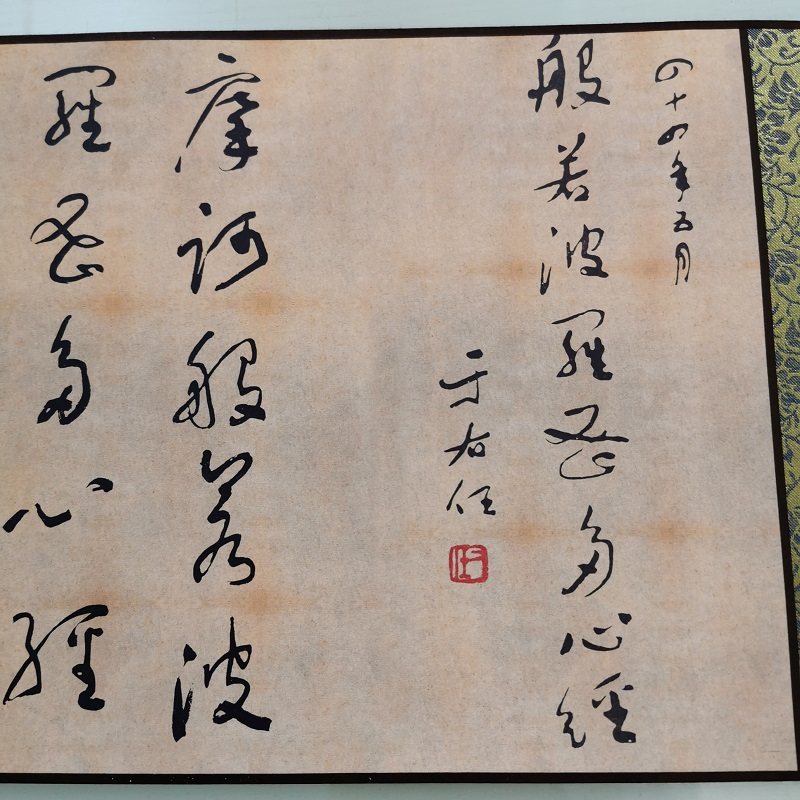 四十四年五月
般若波羅蜜多心經
于右任
摩訶般若波
羅蜜多心經